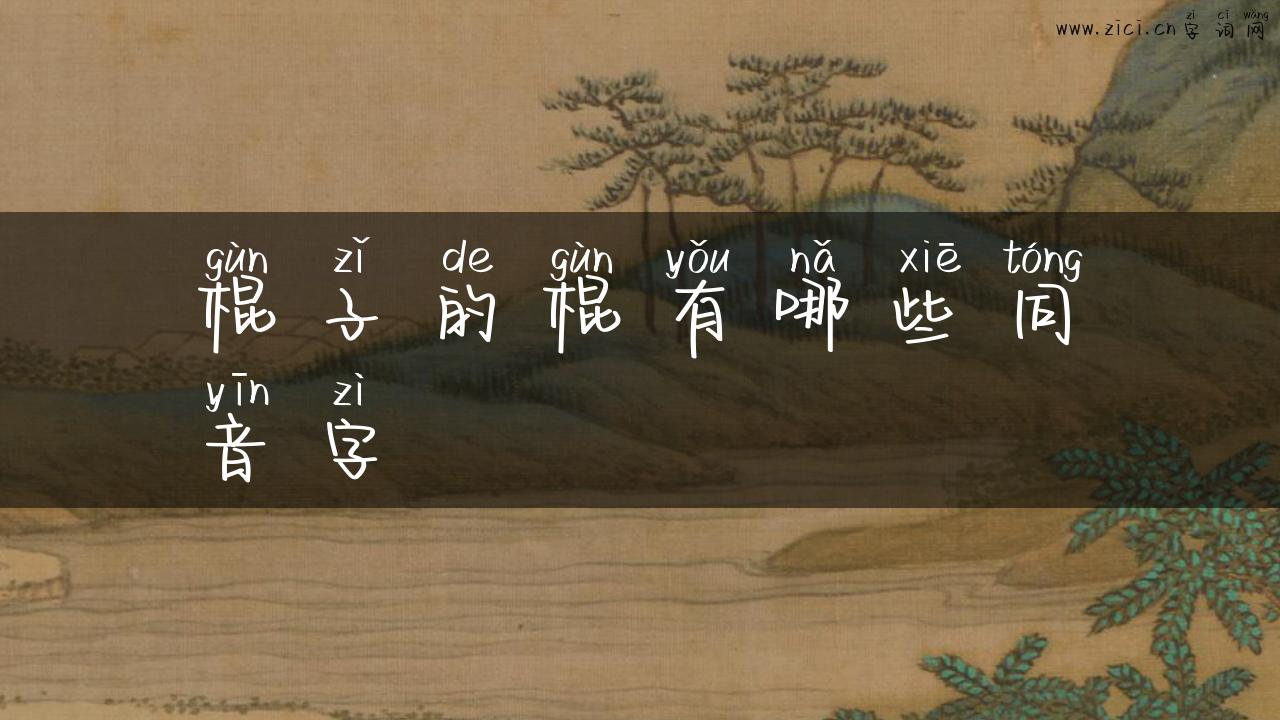 zì cí wǎng
www.zici.cn 字词网
gùn zǐ de gùn yǒu nǎ xiē tóng
棍子的棍有哪些同
yīn zì
音字